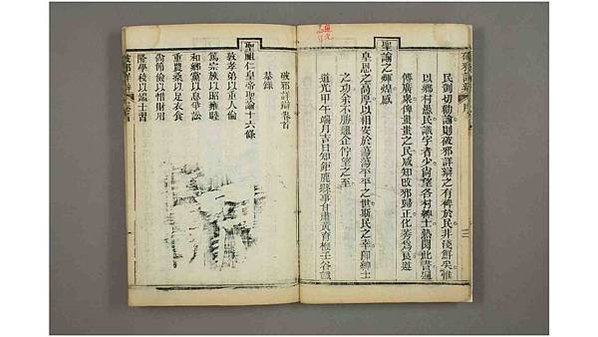 破邪詳辯 序 三
民剴切勸諭則破邪詳辯之有裨於民非淺鮮矣惟
以鄉村愚民識字者少尚望各村紳士熱閱此書遍
傳廣衆俾蚩蚩之民咸知改邪歸正化莠爲良道
聖諭之輝煌感
皇恩之高厚以相安於蕩蕩平平之世斯民之幸卽紳士
之功弟不勝翹企佇望之至
道光甲午端月吉日知鉅鹿縣事甘肅黃育楩壬谷識
破邪詳辯卷首
恭錄
聖祖仁皇帝聖諭十六條
敦孝弟以重人倫
篤宗族以昭雍睦
和鄉黨以息爭訟
重農桑以足衣食
尚節儉以惜財用
隆學校以端士習
破邪詳辯